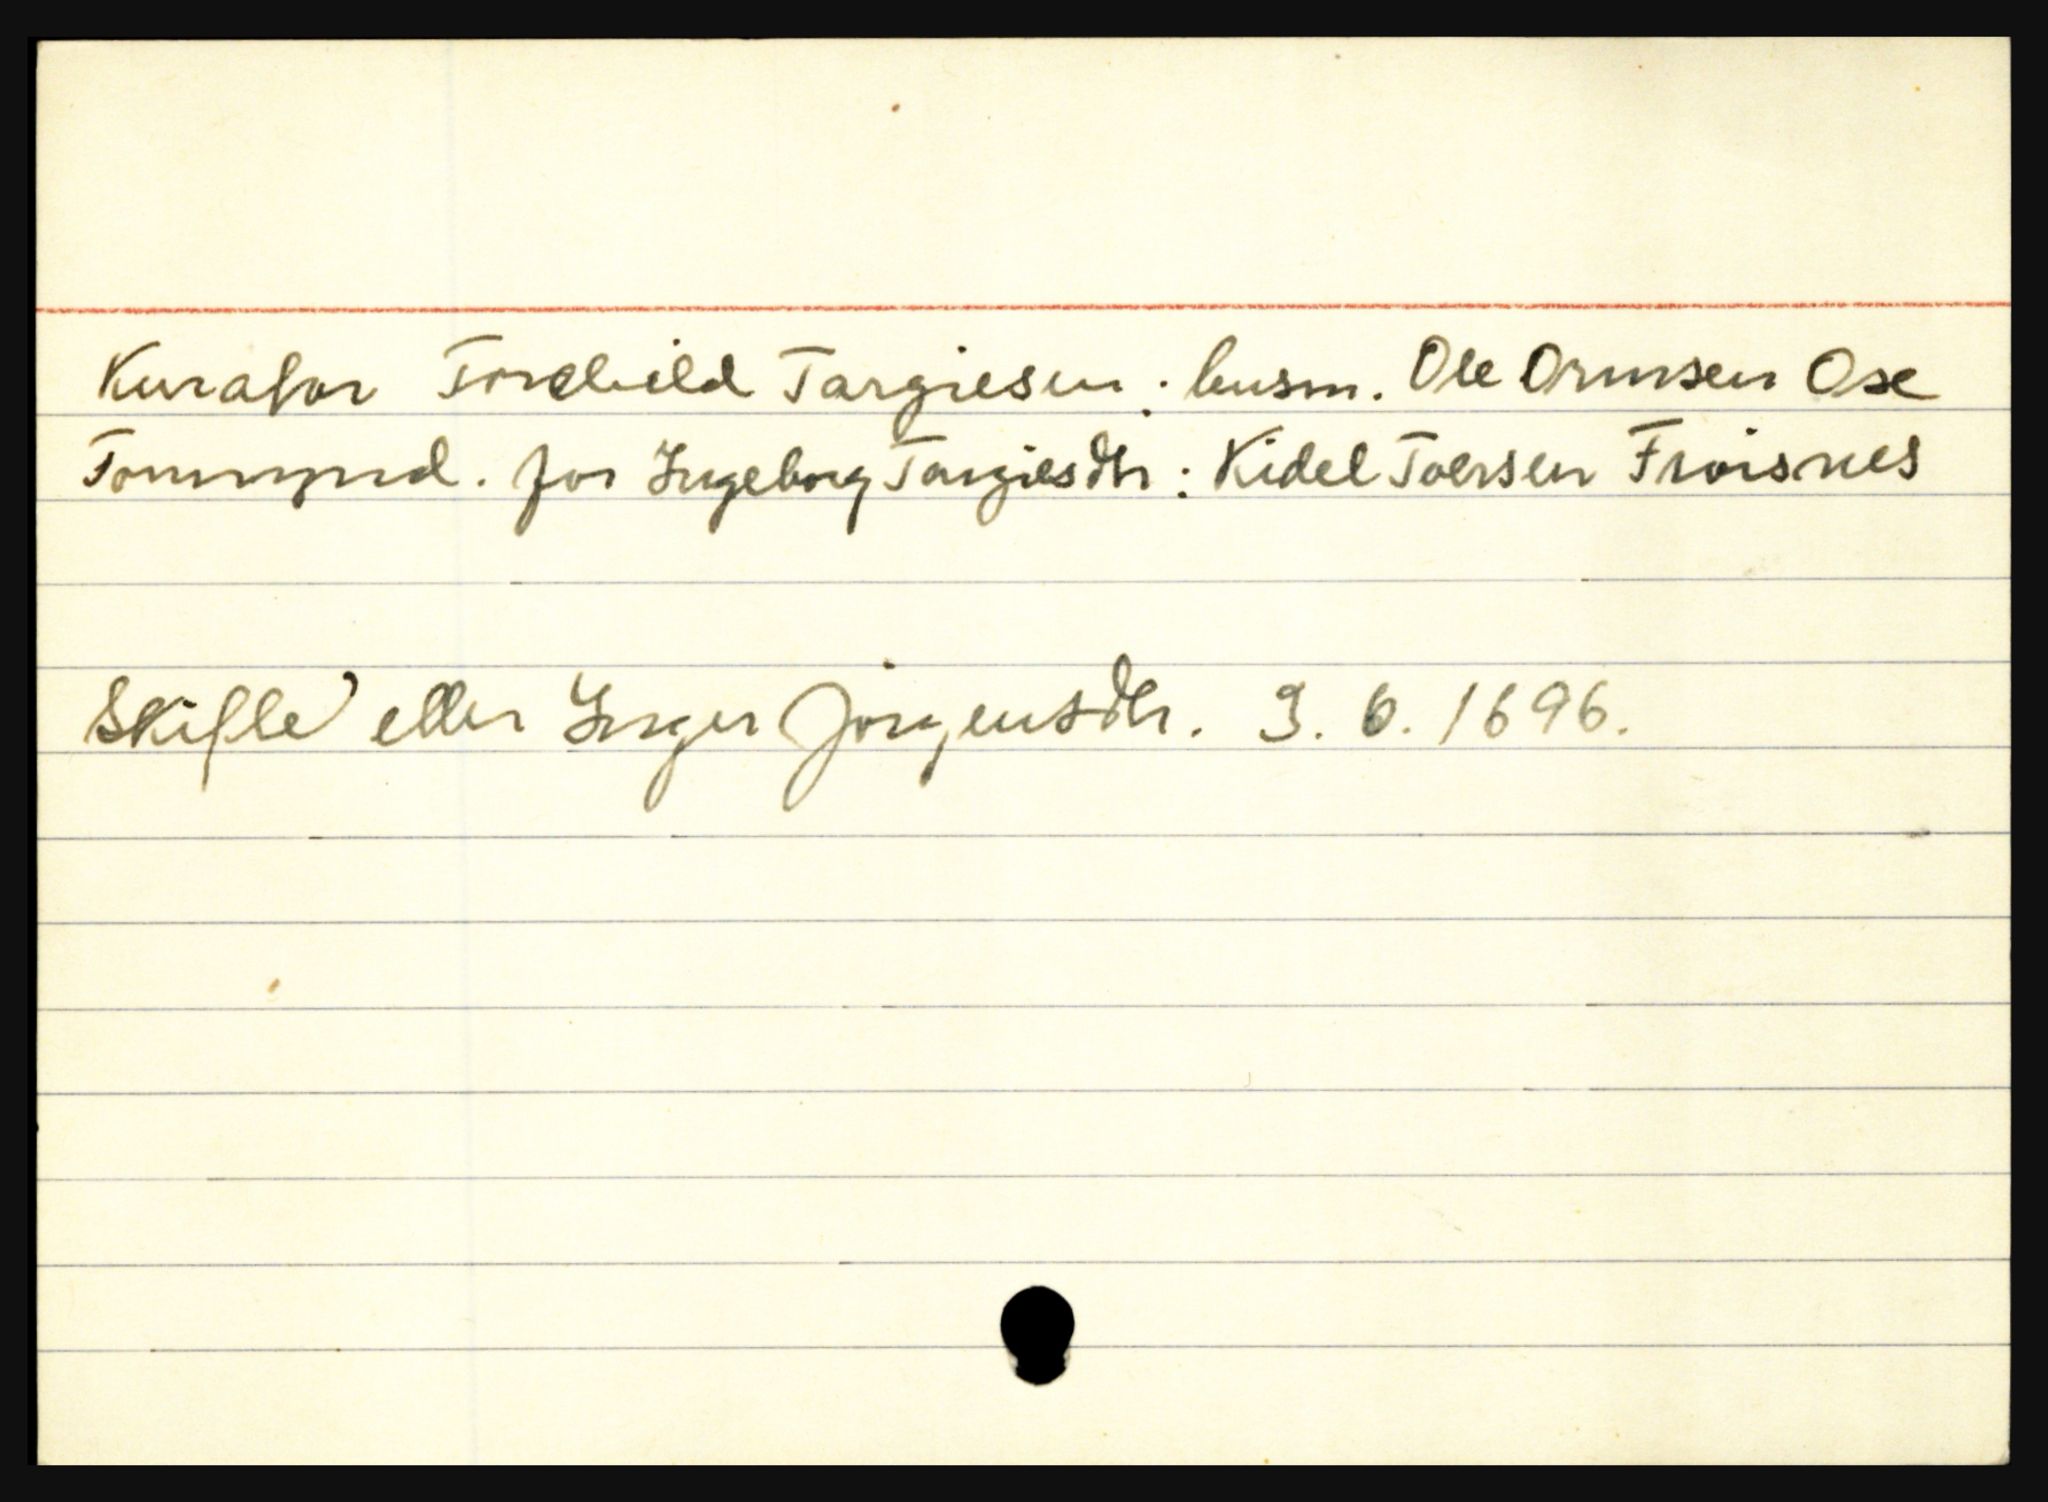 Kurator Torchild Targiesen: husm. Ole Ormsen Ose
Formynd. for Ingeborg Targiesdtr: Kidel Toersen Froisnes
Skifte etter Inger Jörgensdtr. 9. 6. 1696.